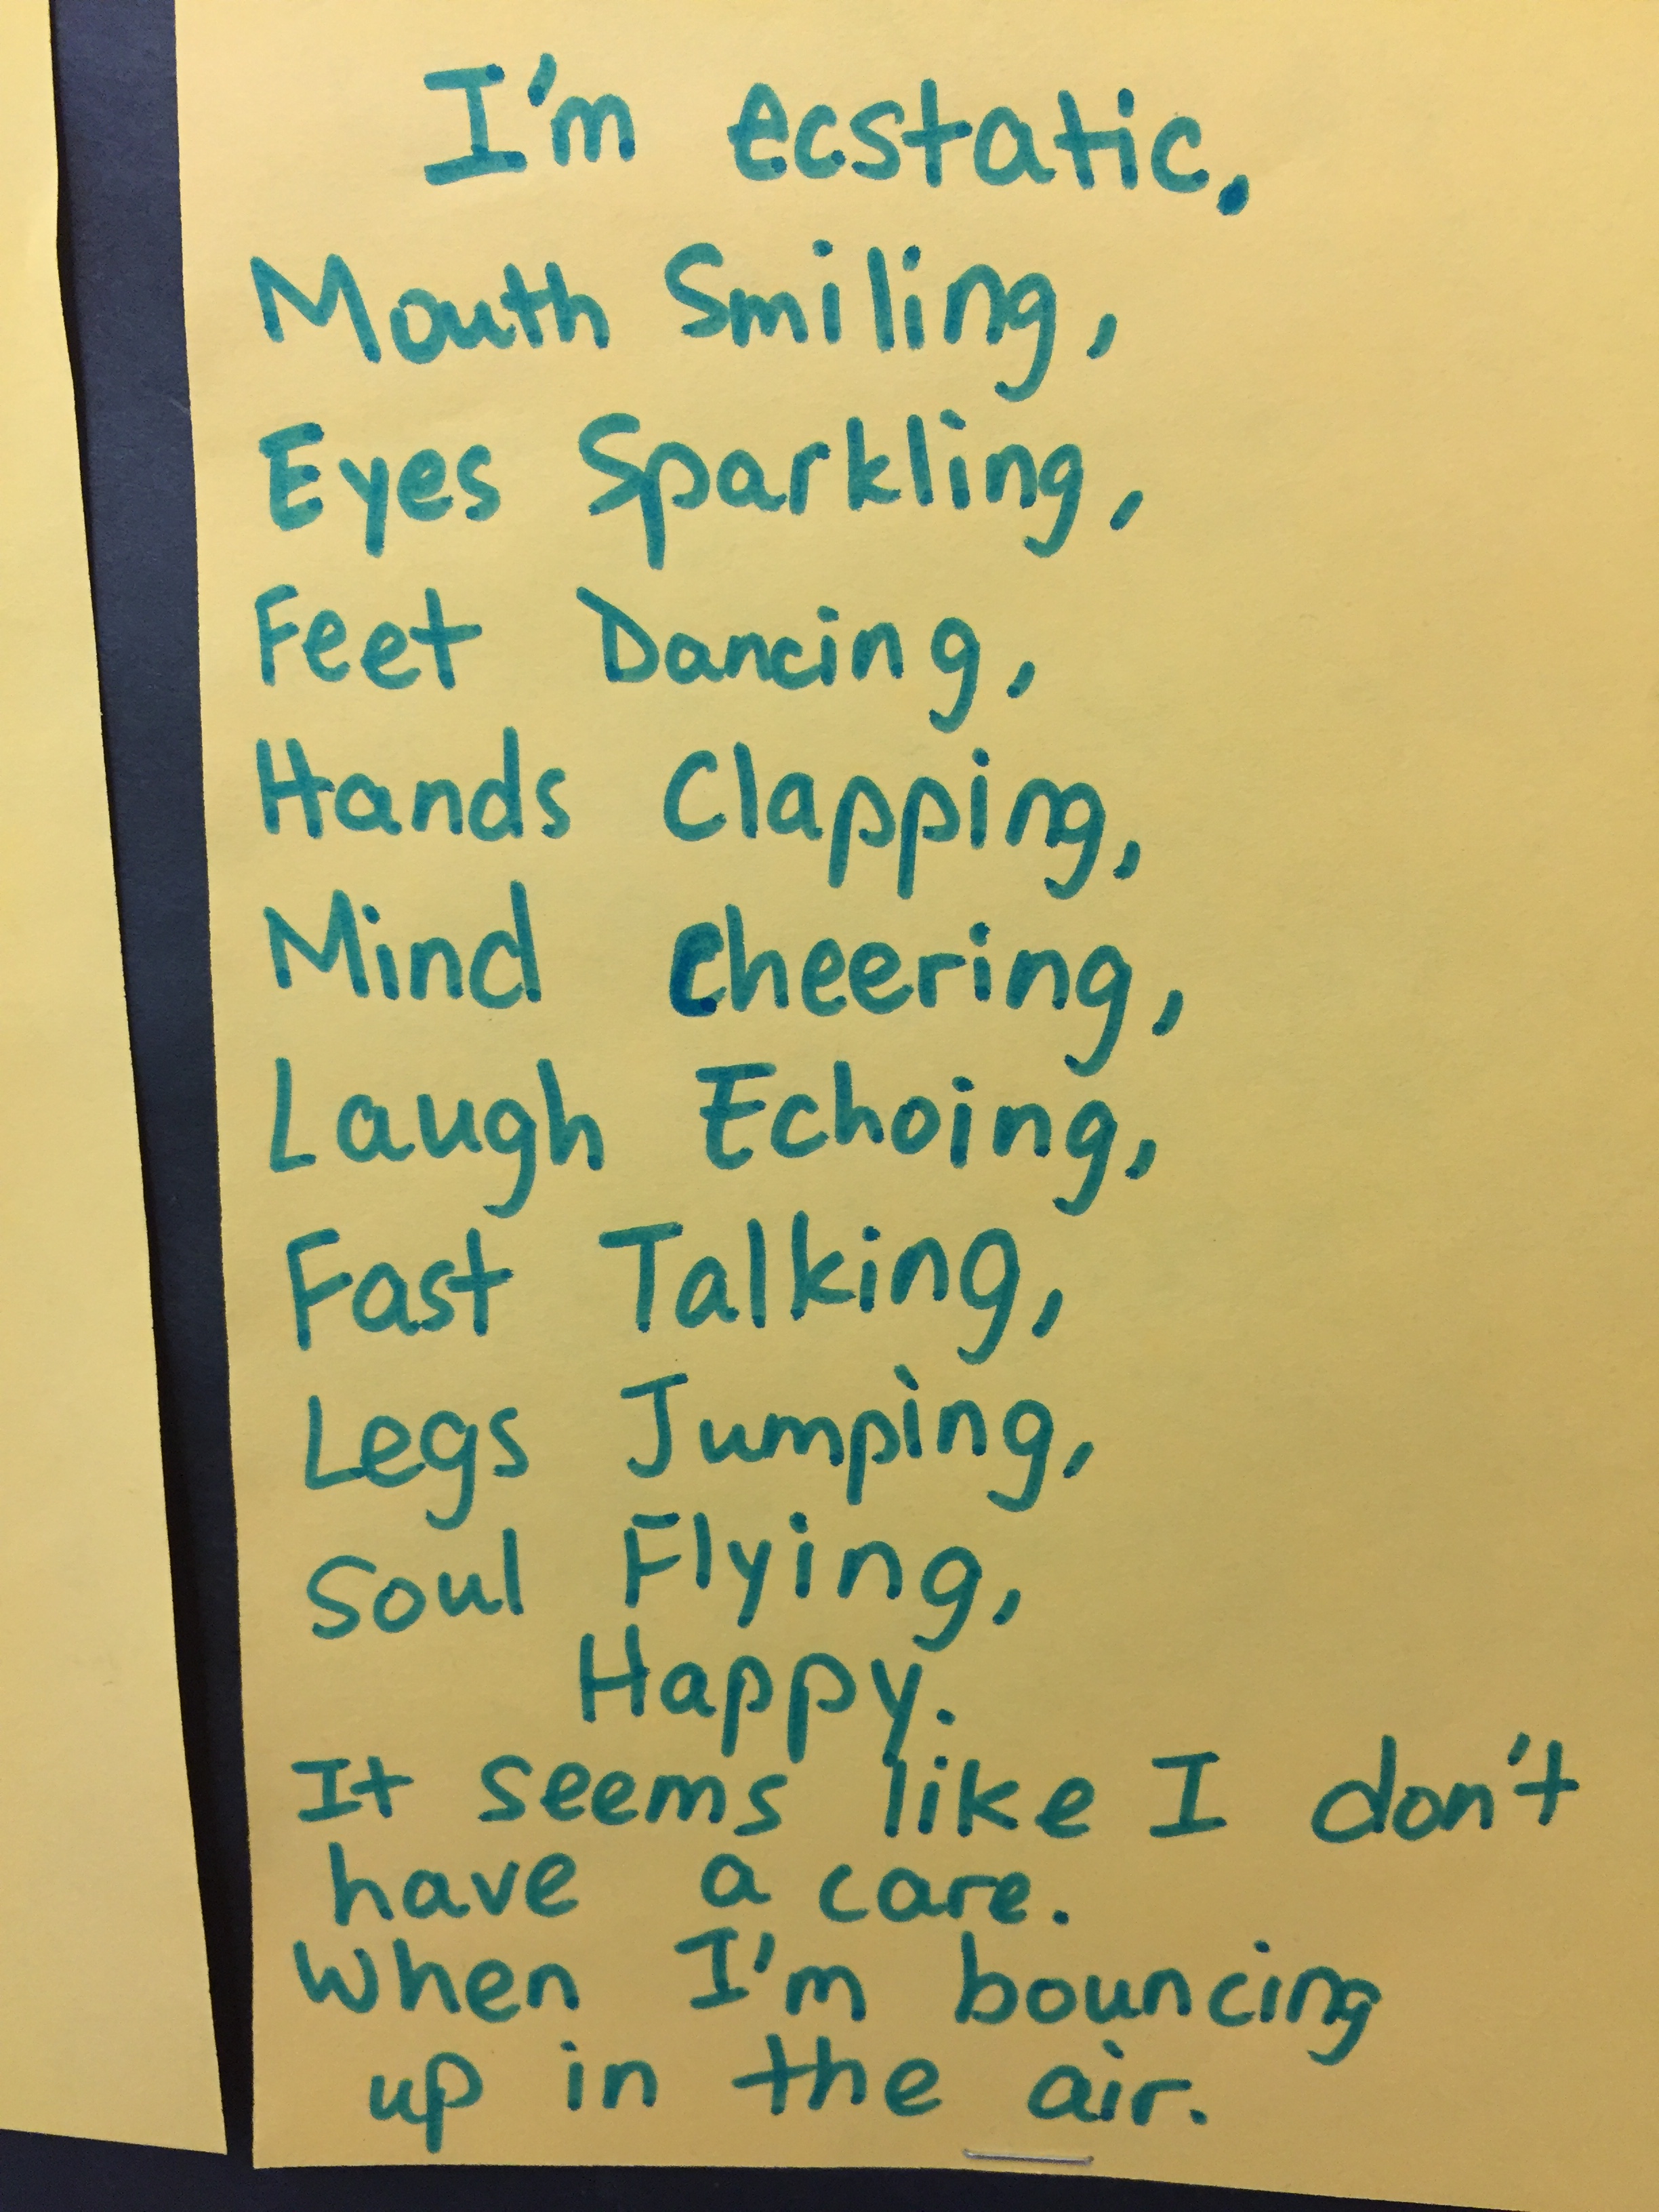 I'm ecstatic,
Mouth Smiling,
Eyes Sparkling,
Feet Dancing,
Hands Clapping,
Mind Cheering,
Laugh Echoing,
Fast Talking,
Legs Jumping,
Soul Flying,
Happy.
It seems like I don't
have a care.
When I'm bouncing
up in the air.